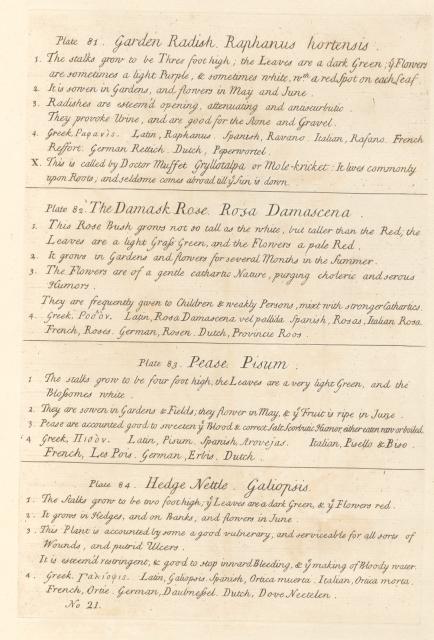 Plate 81. Garden Radish. Raphanus hortensis.
1. The stalks grow to be Three foot high; the Leaves are a dark Green; yͤ Flowers
are sometimes a light Purple, & sometimes white, wᵗʰ a red spot on each Leaf.
2. It is sowen in Gardens, and flowers in May and June.
3. Radishes are esteem'd opening, attenuating and antiscurbutic.
They provoke Urine, and are good for the Stone and Gravel.
4. Greek, Ραφανις. Latin, Raphanus. Spanish, Ravano. Italian, Rafano. French
Reffort. German Rettich. Dutch, Peperwortel.
X. This is called by Doctor Muffet Gryllotalpa or Mole-kricket: It lives commonly
upon Roots; and seldome comes abroad till yͤ Sun is down.
Plate 82. The Damask Rose. Rosa Damascena.
1. This Rose Bush grows not so tall as the white, but taller than the Red; the
Leaves are a light Grass Green, and the Flowers a pale Red.
2. It grows in Gardens and flowers for several Months in the Summer.
3. The Flowers are of a gentle cathartic Nature, purging choleric and serous
Humors.
They are frequently given to Children & weakly Persons, mixt with stronger Cathartics.
4. Greek, Ροδον. Latin, Rosa Damascena vel pallida. Spanish, Rosas, Italian Rosa.
French, Roses. German, Rosen. Dutch, Provincie Roos.
Plate 83. Pease. Pisum.
1 The stalks grow to be four foot high, the Leaves are a very light Green, and the
Blossomes white.
2. They are sowen in Gardens & Fields; they flower in May, & yͤ Fruit is ripe in June.
3. Pease are accounted good to sweeten yͤ Blood & correct Salt Scorbutic Humor, either eaten raw or boiled.
4 Greek, Πισον. Latin, Pisum. Spanish, Arovejas. Italian, Pisello & Biso.
French, Les Pois. German, Erbis. Dutch.
Plate 84. Hedge Nettle. Galiopsis.
1. The Stalks grow to be two foot high; yͤ Leaves are a dark Green, & yͤ Flowers red.
2. It grows in Hedges, and on Banks, and flowers in June.
3. This Plant is accounted by some a good vulnerary, and serviceable for all sorts of
Wounds, and putrid Ulcers.
It is esteem'd restringent, & good to stop inward Bleeding, & yͤ making of Bloody water.
4. Greek. Γαλιοψις. Latin, Galiopsis. Spanish, Ortica muerta. Italian, Ortica morta.
French, Ortie. German, Daubnessel. Dutch, Dove Neetelen.
No 21.